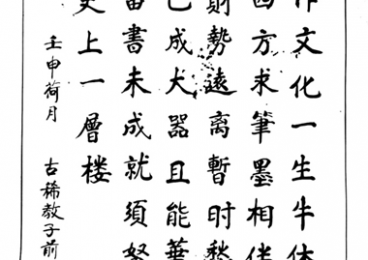 作文化一生牛
四方求筆墨相伴
財勢遠离暫时愁
已成犬器且能華
書未成就須努
更上一層楼
壬申荷月 古稀教子前